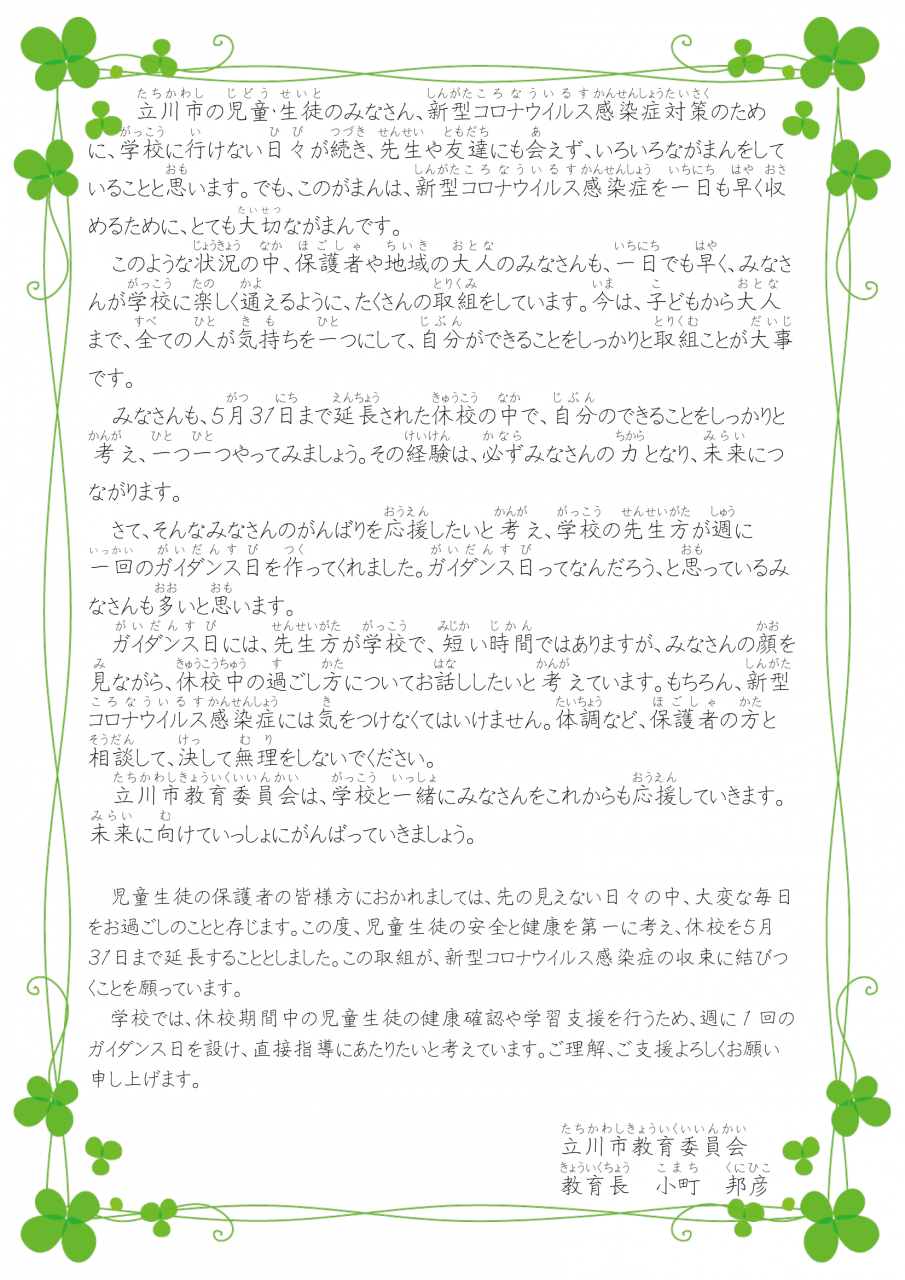 立川市の児童・生徒のみなさん、新型コロナウイルス感染症対策のため
に、学校に行けない日々が続き、先生や友達にも会えず、いろいろながまんをして
いることと思います。でも、このがまんは、新型コロナウイルス感染症を一日も早く収
めるために、とても大切ながまんです。
このような状況の中、保護者や地域の大人のみなさんも、一日でも早く、みなさ
んが学校に楽しく通えるように、たくさんの取組をしています。今は、子どもから大人
まで、全ての人が気持ちを一つにして、自分ができることをしっかりと取組ことが大事
です。
みなさんも、5月31日まで延長された休校の中で、自分のできることをしっかりと
考え、一つ一つやってみましょう。その経験は、必ずみなさんの力となり、未来につ
ながります。
さて、そんなみなさんのがんばりを応援したいと考え、学校の先生方が週に
一回のガイダンス日を作ってくれました。ガイダンス日ってなんだろう、と思っているみ
なさんも多いと思います。
ガイダンス日には、先生方が学校で、短い時間ではありますが、みなさんの顔を
見ながら、休校中の過ごし方についてお話ししたいと考えています。もちろん、新型
コロナウイルス感染症には気をつけなくてはいけません。体調など、保護者の方と
相談して、決して無理をしないでください。
立川市教育委員会は、学校と一緒にみなさんをこれからも応援していきます。
未来に向けていっしょにがんばっていきましょう。
児童生徒の保護者の皆様方におかれましては、先の見えない日々の中、大変な毎日
をお過ごしのことと存じます。この度、児童生徒の安全と健康を第一に考え、休校を5月
31日まで延長することとしました。この取組が、新型コロナウイルス感染症の収束に結びつ
くことを願っています。
学校では、休校期間中の児童生徒の健康確認や学習支援を行うため、週に1回の
ガイダンス日を設け、直接指導にあたりたいと考えています。ご理解、ご支援よろしくお願い
申し上げます。
たちかわしきょういくいいんかい
立川市教育委員会
きょういくちょう こまち くにひこ
教育長 小町 邦彦